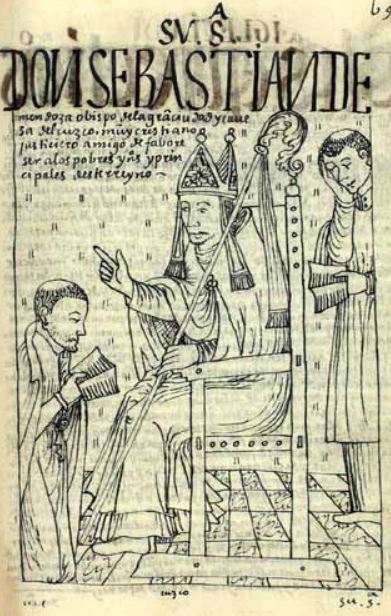 A
SVS
DON SEBASTIAN DE
mendoza obispo de la gran ciudad y caue
sa del cuzco, muy cristiano
justiciero amigo de fabore
ser a los pobres yns y prin
cipales deste rreyno ~
cuzco